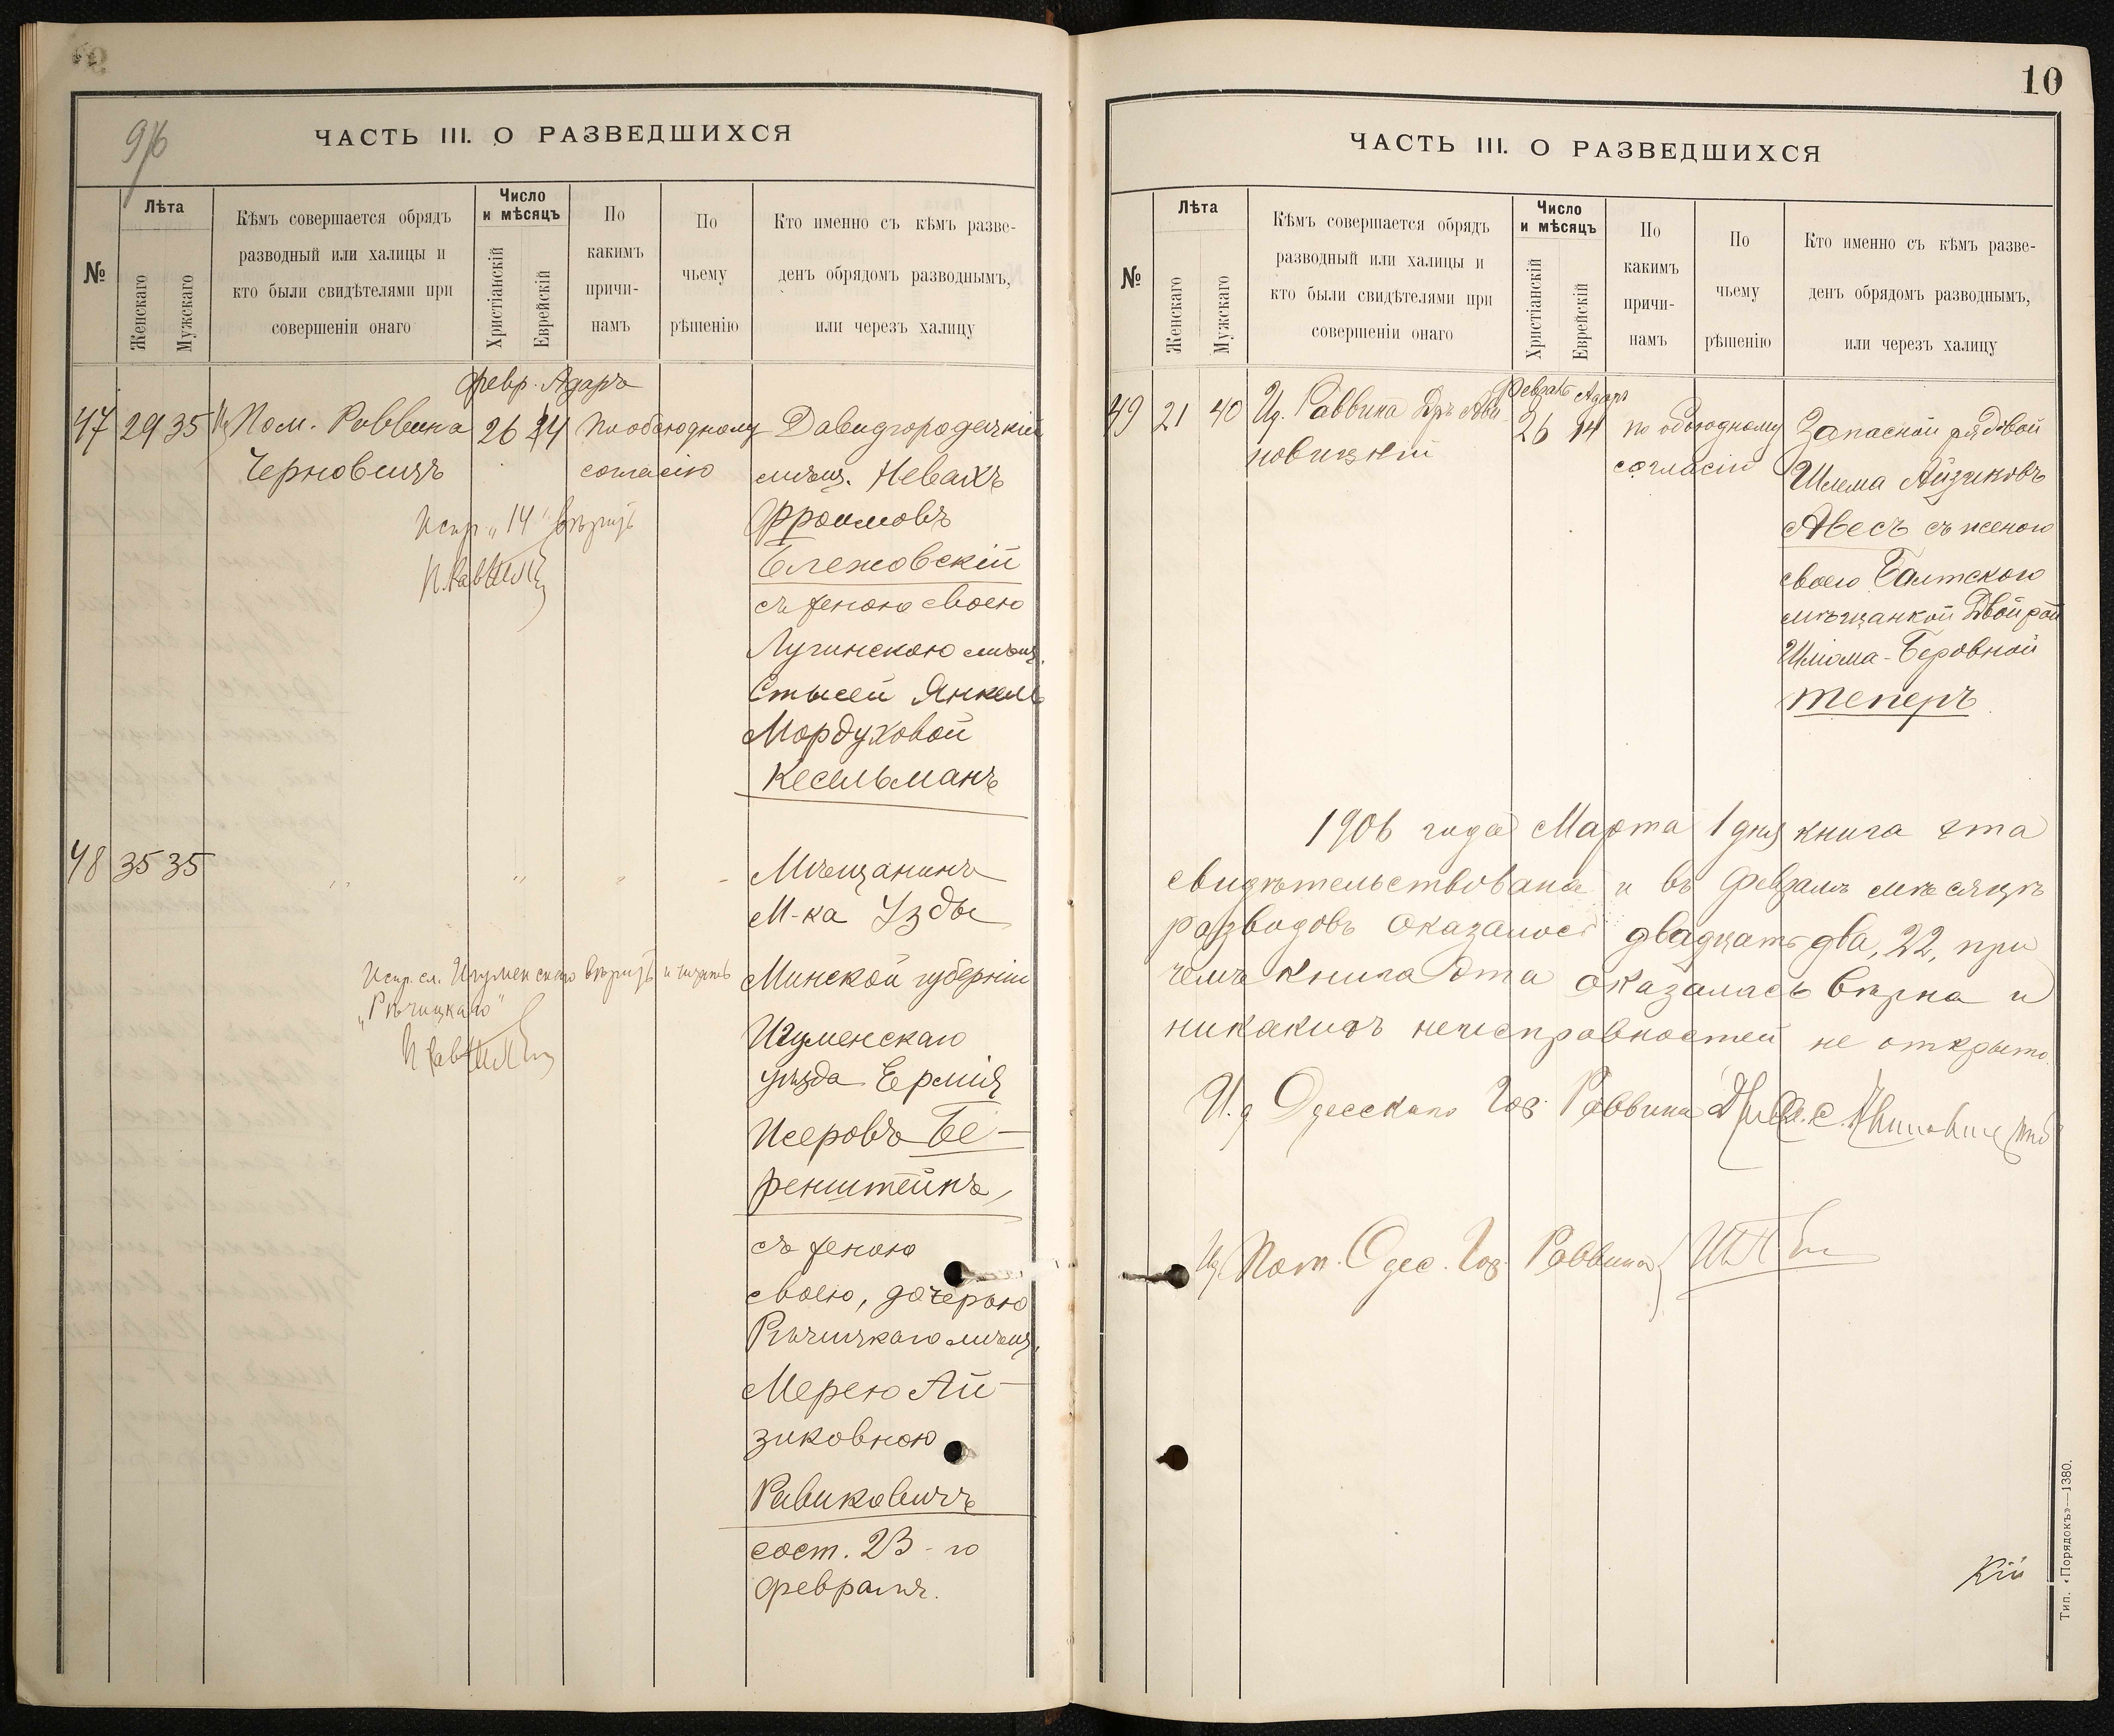 9/6
ЧАСТЬ III. О РАЗВЕДШИХСЯ
№
Лѣта
Женскаго
Мужскаго
Кѣмъ совершается обрядъ
разводный или халицы и
кто были свидѣтелями при
совершеніи онаго
Число
и мѣсяцъ
Христіанскій
Еврейскій
По
какимъ
причи-
намъ
По
чьему
рѣшенію
Кто именно съ кѣмъ разве-
денъ обрядомъ разводнымъ,
или черезъ халицу
Февр. Адаръ
47 29 35 Пом. Раввина 26 14 По обоюдному Давидгородецкій
Черновицъ согласію мѣщ. Невахъ
Испр. „14" вѣрить Фроимовъ
Блежовскій
съ женою своею
Лугинскою мѣщ.
Стысей Янкель
Мордуховой
Кесельманъ
48 35 35 " " " " Мѣщанинъ
М-ка Узды
Испр. сл. Игуменскаго вѣрить и читать Минской губерніи
„Рѣчицкаго"
Игуменскаго
уѣзда Ермія
Исеровъ Бе-
ренштейнъ,
съ женою
своею, дочерью
Рѣчицкаго мѣщ.
Мерею Ай-
зиковною
Равиковичъ
сост. 23-го
февраля.
10
ЧАСТЬ III. О РАЗВЕДШИХСЯ
№
Лѣта
Женскаго
Мужскаго
Кѣмъ совершается обрядъ
разводный или халицы и
кто были свидѣтелями при
совершеніи онаго
Число
и мѣсяцъ
Христіанскій
Еврейскій
По
какимъ
причи-
намъ
По
чьему
рѣшенію
Кто именно съ кѣмъ разве-
денъ обрядомъ разводнымъ,
или черезъ халицу
Февраль Адаръ
49 21 40 Ид. Раввина Дръ Ави- 26 14 по обоюдному Запасной рядовой
новицкій согласію Шлема Айзиковъ
Авесъ съ женою
своею Балтского
мѣщанкой Двойрой
Шлома-Беровной
Теперъ
1906 года Марта 1 дня книга эта
свидѣтельствована и въ Февралѣ мѣсяцѣ
разводовъ оказалось двадцать два, 22, при
чемъ книга эта оказалась вѣрна и
никакихъ неисправностей не открыто.
И. д. Одесскаго Гор. Раввина
Ид. Пом. Одес. Гор. Раввина
кій
Тип. «Порядокъ»—1380.